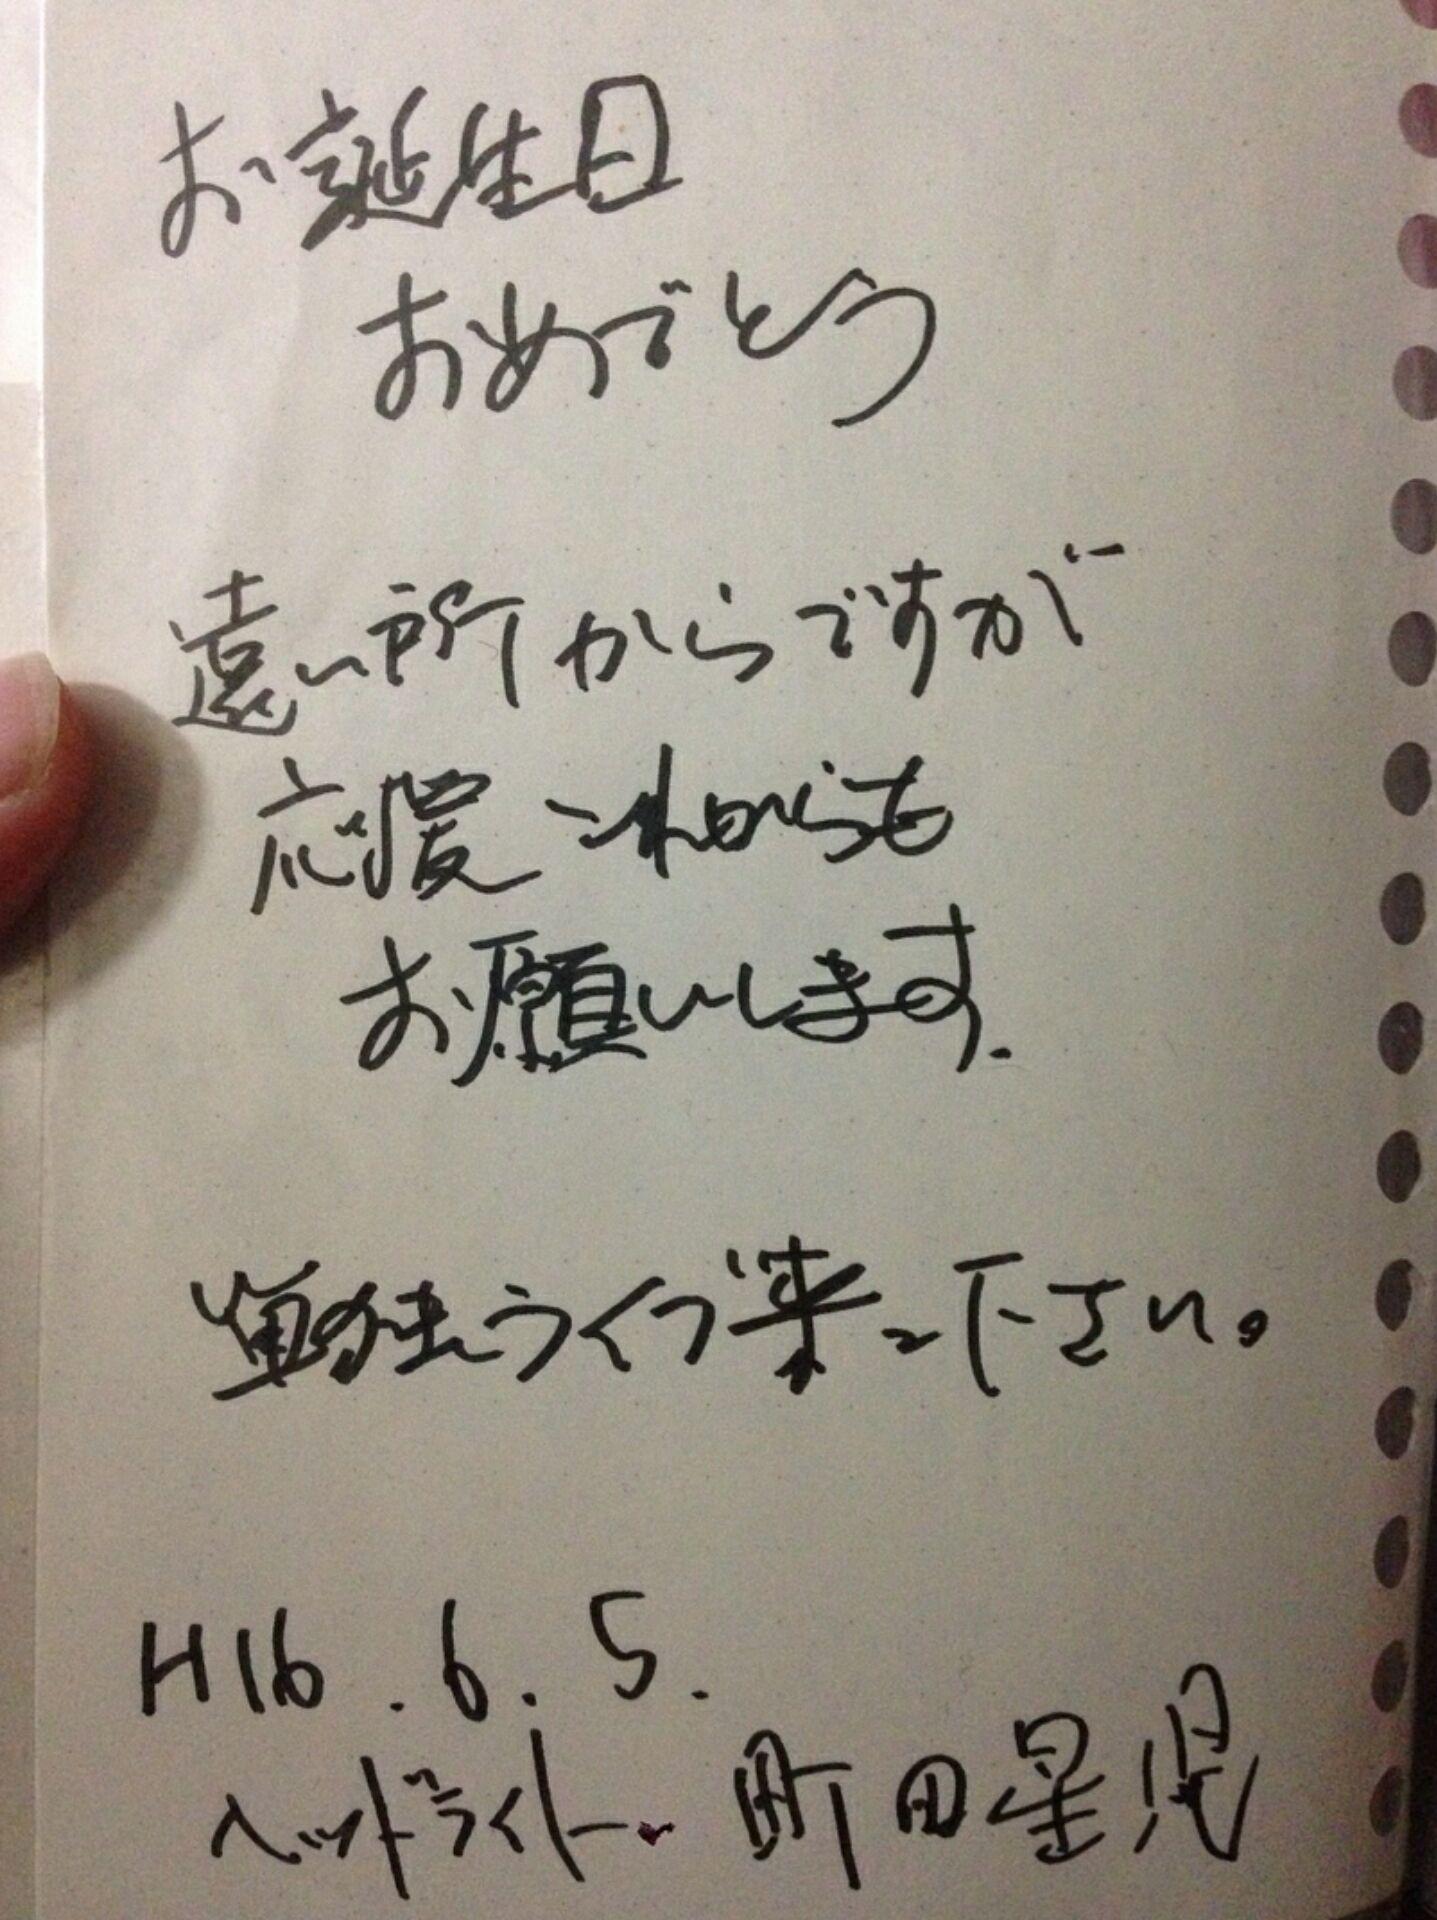 お誕生日
おめでとう
遠い所からですが
応援これからも
お願いします.
単独ライブ来て下さい。
H16.6.5.
ヘッドライト. 町田星児